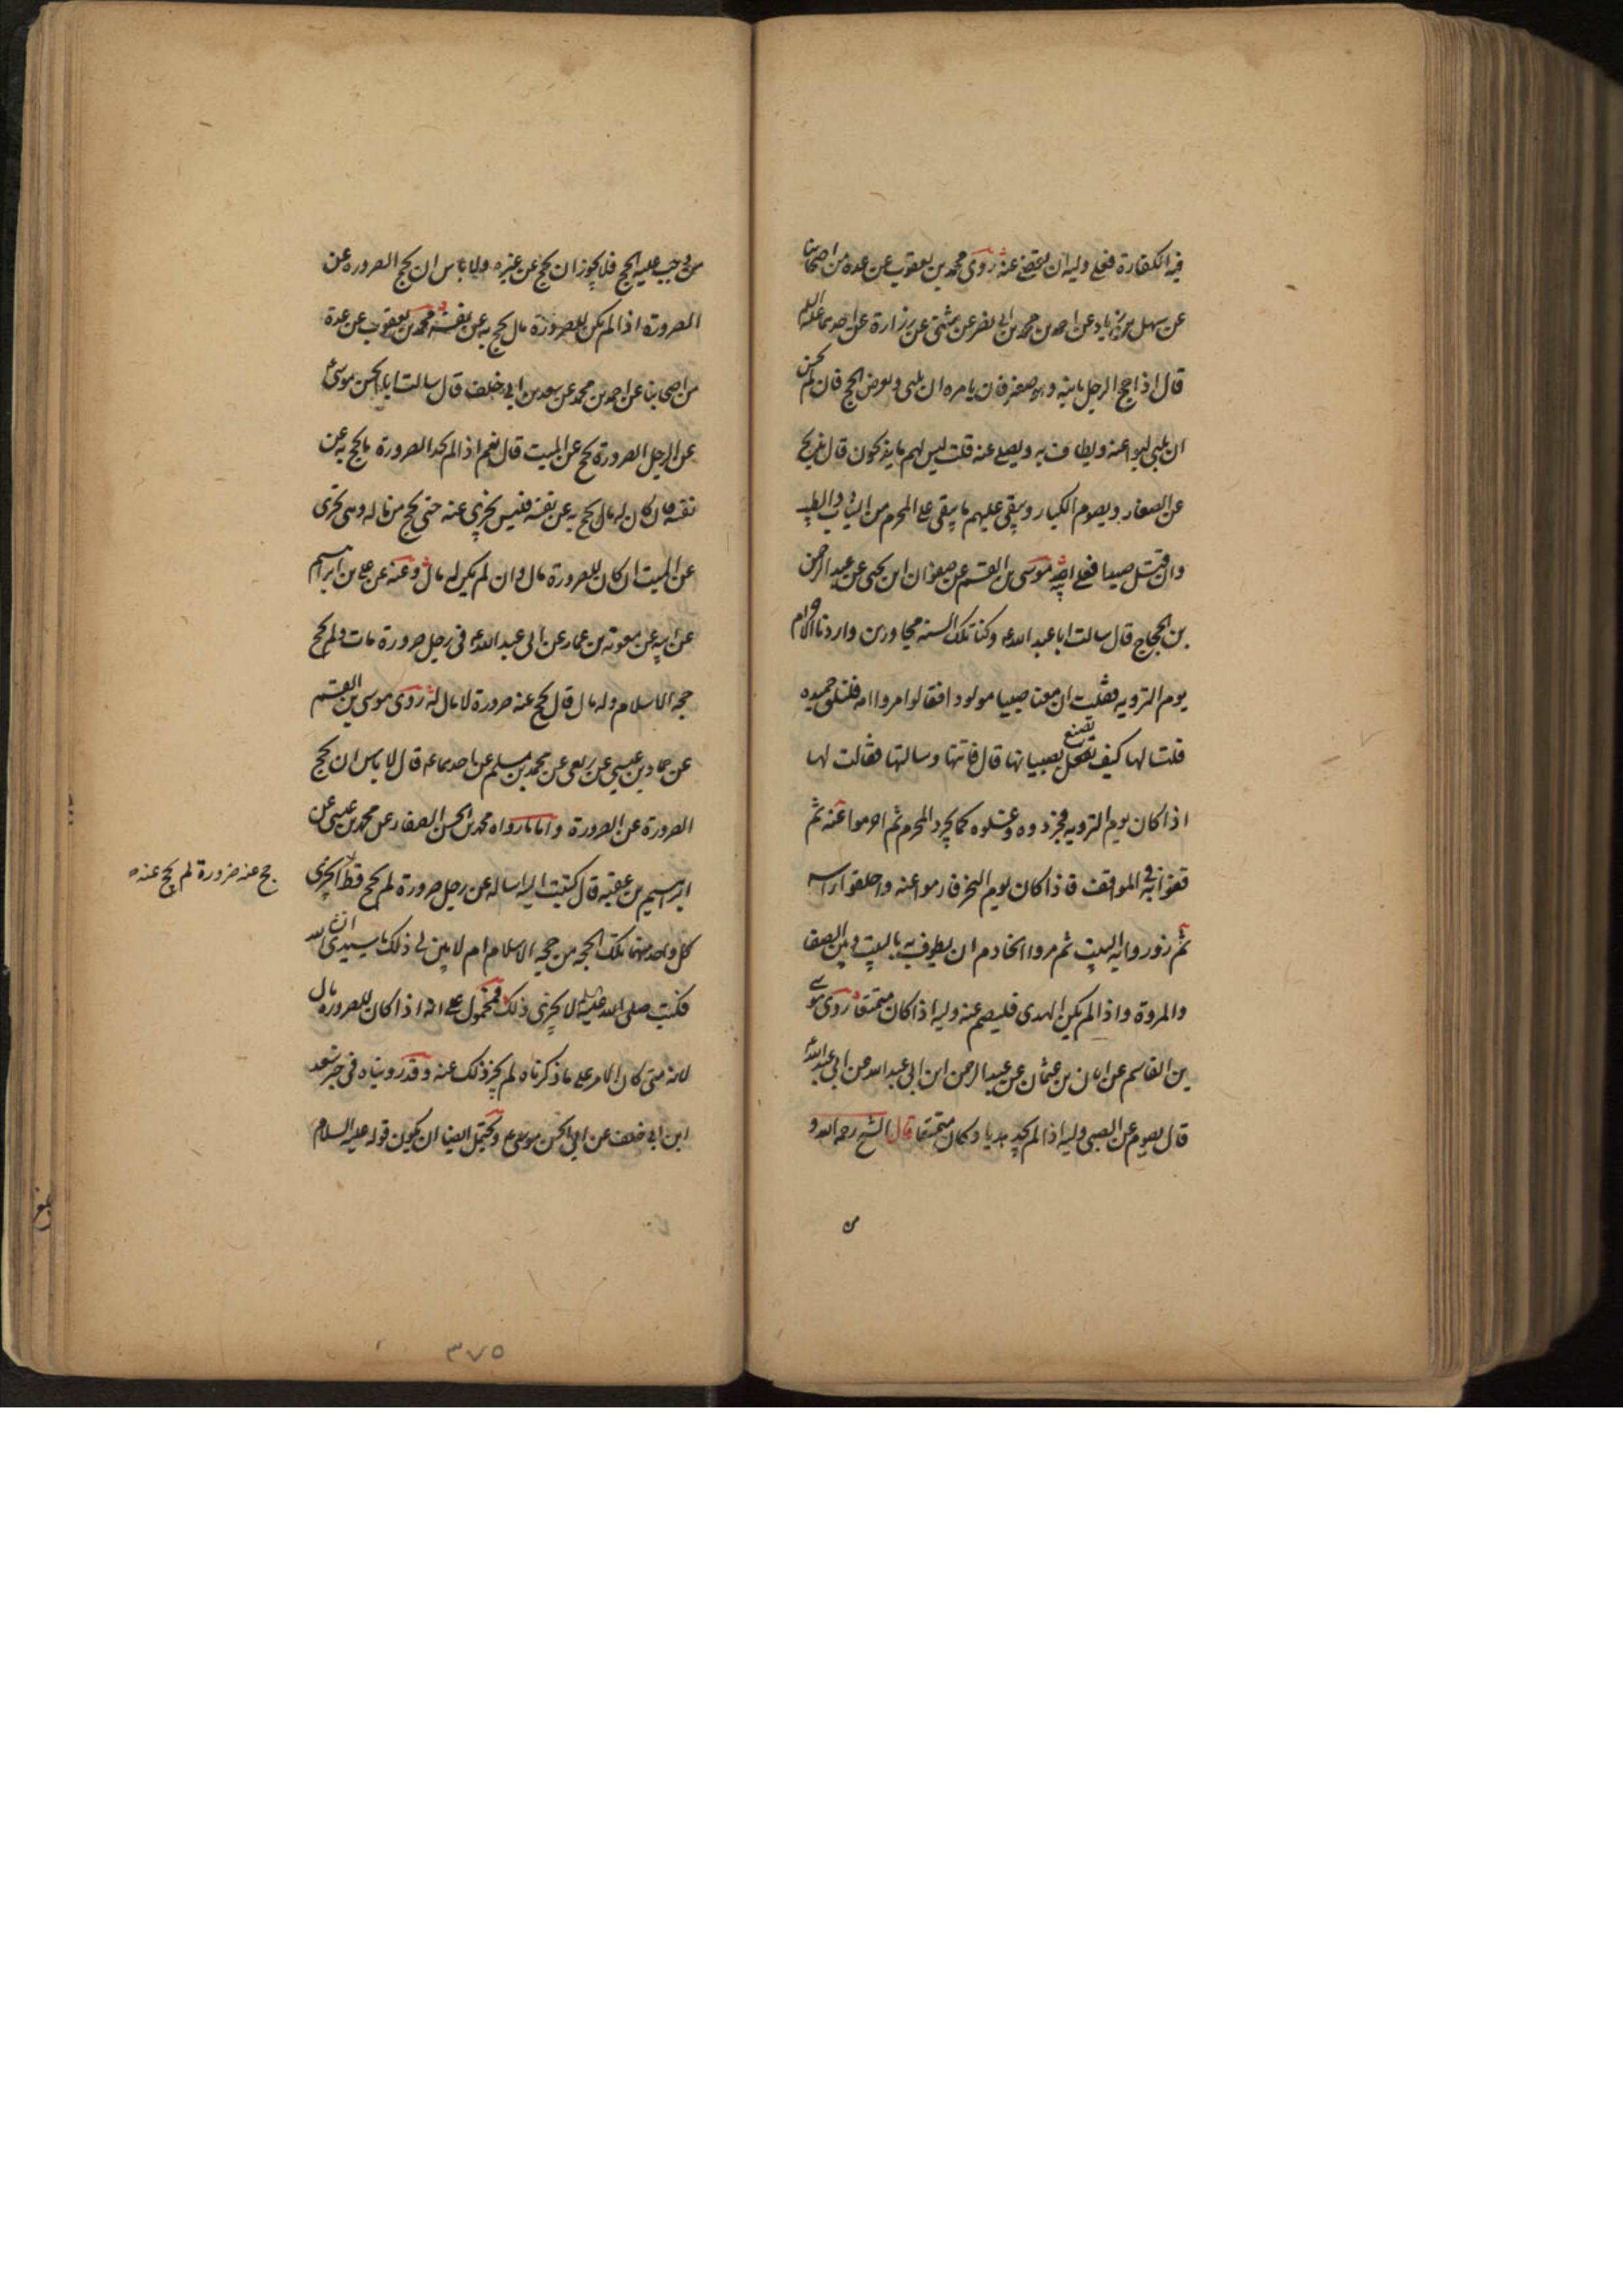 فيه الكفارة فعلى وليه ان يقضى عنه روى محمد بن يعقوب عن عدة من اصحابنا
عن سهل بن زياد عن احمد بن محمد بن ابي نصر عن مثنى عن زرارة عن احدهما عليهما السلام
قال اذا حج الرجل بابنه وهو صغير فانه يامره ان يلبى ويفرض الحج فان لم يحسن
ان يلبى لبوا عنه ويطاف به ويصلى عنه قلت ليس لهم ما يذبحون قال يذبح
عن الصغار ويصوم الكبار ويتقى عليهم ما يتقى على المحرم من الثياب والطيب
وان قتل صيدا فعلى ابيه موسى بن القسم عن صفوان ابن يحيى عن عبد الرحمن
بن الحجاج قال سالت ابا عبد الله ع وكنا تلك السنة مجاورين واردنا الاحرام
يوم الترويه فقلت ان معنا صبيا مولودا فقالوا مروا امه فلتلق حميده
قلت لها كيف تفعل تصنع بصبيانها قال فاتتها وسالتها فقالت لها
اذا كان يوم الترويه فجردوه وغسلوه كما يجرد المحرم ثم احرموا عنه ثم
قفوا به في المواقف فاذا كان يوم النحر فارموا عنه واحلقوا راسه
ثم زوروا به البيت ثم مروا الخادم ان يطوف به بالبيت وبين الصفا
والمروة واذا لم يكن الهدى فليصم عنه وليه اذا كان متمتعا روى موسى
بن القاسم عن ابان بن عثمان عن عبد الرحمن ابن ابي عبد الله عن ابي عبد الله ع
قال يصوم عن الصبي وليه اذا لم يجد هديا وكان متمتعا قال الشيخ رحمه الله و
من
من وجب عليه الحج فلا يجوز ان يحج عن غيره ولا باس ان يحج الصرورة عن
الصرورة اذا لم يكن للصرورة مال يحج به عن نفسه محمد بن يعقوب عن عدة
من اصحابنا عن احمد بن محمد عن سعد بن ابي خلف قال سالت ابا الحسن موسى ع
عن الرجل الصرورة يحج عن الميت قال نعم اذا لم يجد الصرورة ما يحج به عن
نفسه فان كان له مال يحج به عن نفسه فليس يجزى عنه حتى يحج من ماله وهى تجزى
عن الميت ان كان للصرورة مال وان لم يكن له مال وعنه عن على بن ابراهيم
عن ابيه عن معوية بن عمار عن ابي عبد الله ع في رجل صرورة مات ولم يحج
حجة الاسلام وله مال قال يحج عنه صرورة لا مال له روى موسى بن القسم
عن حماد بن عيسى عن ربعى عن محمد بن مسلم عن احدهما ع قال لا باس ان يحج
الصرورة عن الصرورة واما ما رواه محمد بن الحسن الصفار عن محمد بن عيسى عن
ابراهيم بن عقبة قال كتبت اليه اساله عن رجل صرورة لم يحج قط ايجزى
حج عنه صرورة لم يحج عنه
كل واحد منهما تلك الحجة من حجة الاسلام ام لا بين لى ذلك يا سيدى ان شاء الله
فكتب صلى الله عليه لا يجزى ذلك فمحمول على انه اذا كان للصرورة مال
لانه متى كان الامر على ما ذكرناه لم يجز ذلك عنه وقد رويناه في خبر سعد
ابن ابي خلف عن ابي الحسن موسى ع ويحتمل ايضا ان يكون قوله عليه السلام
٣٧٥